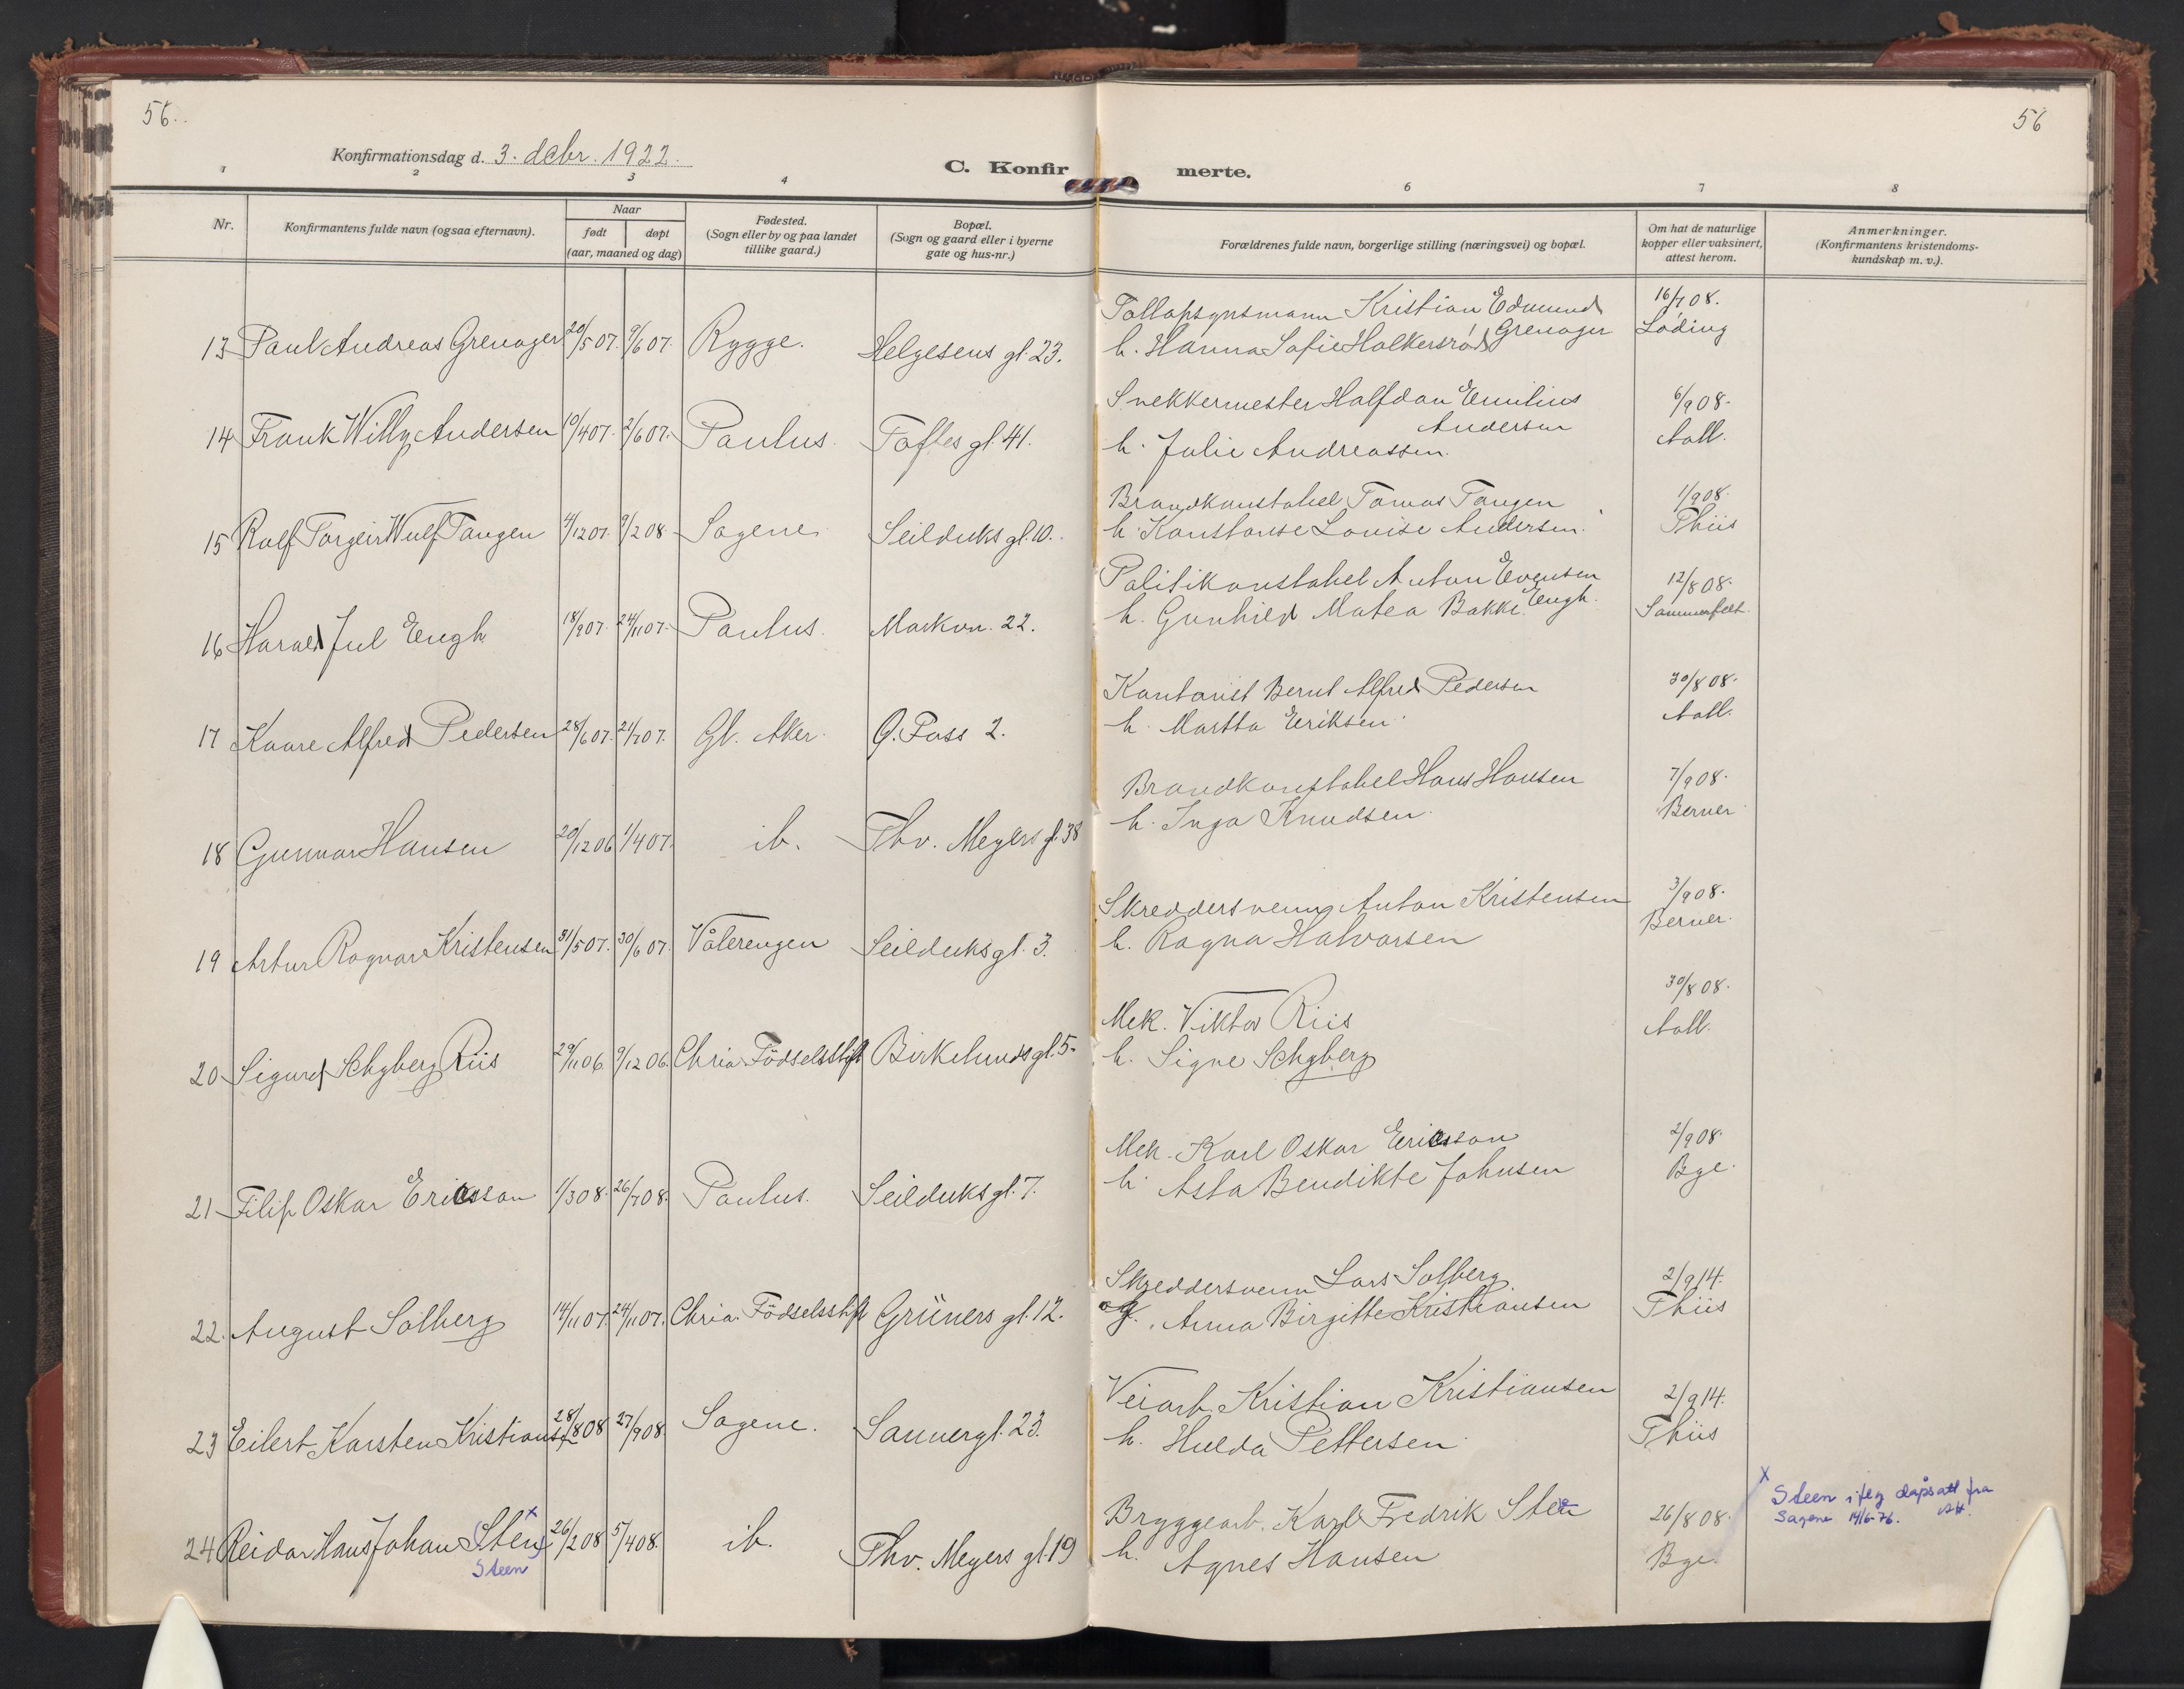 56.
56
Konfirmationsdag d. 3. debr. 1922.
C. Konfir merte.
1 2 3 4 6 7 8
Nr.
Konfirmantens fulde navn (ogsaa efternavn).
Naar
født døpt
(aar, maaned og dag)
Fødested.
(Sogn eller by og paa landet
tillike gaard.)
Bopæl.
(Sogn og gaard eller i byerne
gate og hus-nr.)
Forældrenes fulde navn, borgerlige stilling (næringsvei) og bopæl.
Om hat de naturlige
kopper eller vaksinert,
attest herom.
Anmerkninger.
(Konfirmantens kristendoms-
kundskap m. v.).
Tollopsynsmann Kristian Edmund 16/7 08.
13 Paul Andreas Grenager 20/5 07. 9/6 07. Rygge. Helgesens gt. 23. h. Hanna Sofie Holkersrød Grenager Löding
Snekkermester Halfdan Emilius 6/9 08.
Andersen
14 Frank Willy Andersen 10/4 07. 2/6 07. Paulus. Toftes gt. 41. h. Julie Andreassen. Aall.
Brandkonstabel Tomas Tangen 1/9 08.
15 Rolf Torgeir Wulf Tangen 4/12 07. 9/2 08. Sagene Seilduks gt. 10. h. Konstanse Lovise Andersen. Thiis
Politikonstabel Anton Evensen 12/8 08.
Engh.
16 Harald Jul Engh 18/9 07. 24/11 07. Paulus. Markvn. 22. h. Gunhild Matea Bakke Sommerfelt.
Kontorist Bernt Alfred Pedersen 30/8 08.
17 Kaare Alfred Pedersen 28/6 07. 21/7 07. Gl. Aker. O. Foss 2. h. Martha Eriksen. Aall.
Brandkonstabel Hans Hansen 7/9 08.
18 Gunnar Hansen 20/12 06 1/4 07. ib. Thv. Meyers gt. 38 h. Inga Knudsen. Berner
Skreddersvenn Anton Kristensen 3/9 08.
19 Artur Ragnar Kristensen 31/5 07. 30/6 07. Vålerengen Seilduksgt. 3. h. Ragna Halvorsen Berner.
Mek. Viktor Riis 30/8 08.
20 Sigurd Schyberg Riis 29/11 06. 9/12 06. Chria. Födselsstift Birkelundsgt. 5. h. Signe Schyberg Aall.
Mek. Karl Oskar Ericsson 2/9 08.
21 Filip Oskar Ericsson 1/3 08. 26/7 08. Paulus. Seilduksgt. 7. h. Asta Bendikte Johnsen Bge.
Skreddersvenn Lars Solberg 2/9 14.
22. August Solberg 14/11 07. 24/11 07. Chria. Födselsstift Grüners gt. 12. og. Anna Birgitte Kristiansen Thiis
Veiarb. Kristian Kristiansen 2/9 14.
23 Eilert Karsten Kristiansen 28/8 08 27/9 08. Sagene. Sannergt. 23. h. Hulda Pettersen. Thiis
Bryggearb. Karl Fredrik Sten 26/8 08. x Steen iflg dåpsatt fra
Sagene 14/6-76.
24 Reidar Hans Johan (Sten) x 26/2 08 5/4 08. ib. Thv. Meyers gt. 19 h. Agnes Hansen Bge.
Steen